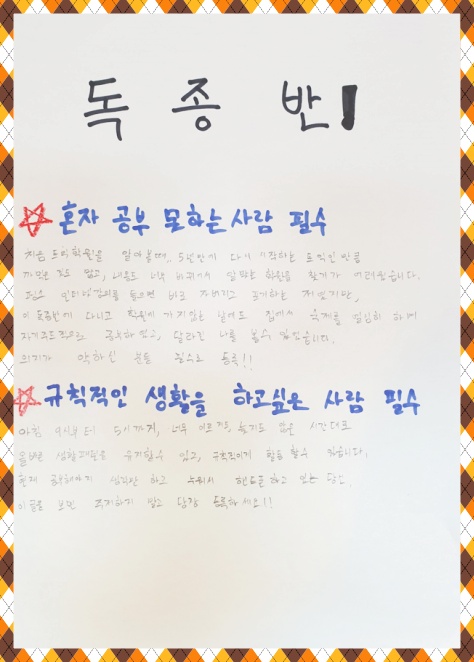 독 종 반!
혼자 공부 못하는 사람 필수
처음 토익학원을 알아볼때, 5년만에 다시 시작하는 토익인 만큼
까먹은 것도 많고, 내용도 너무 바뀌어서 학원을 찾기가 어려웠습니다.
인터넷강의를 들으면 바로 포기하는 저였지만,
이 독종반에 다니고 학원에 가지 않는 날에도 집에서 숙제를 열심히 하며
자기주도적으로 공부하였고, 달라진 나를 볼수 있었습니다.
의지가 약하신 분들 필수로 등록!!
규칙적인 생활을 하고싶은 사람 필수
아침 9시부터 5시까지, 너무 이르지도, 늦지도 않은 시간대로
올바른 생활패턴을 유지할수 있고, 규칙적이게 활동할수 있습니다.
현재 공부해야지 생각만 하고 누워서 핸드폰하고 있는 당신.
이글을 보면 주저하지 말고 당장 등록하세요!!